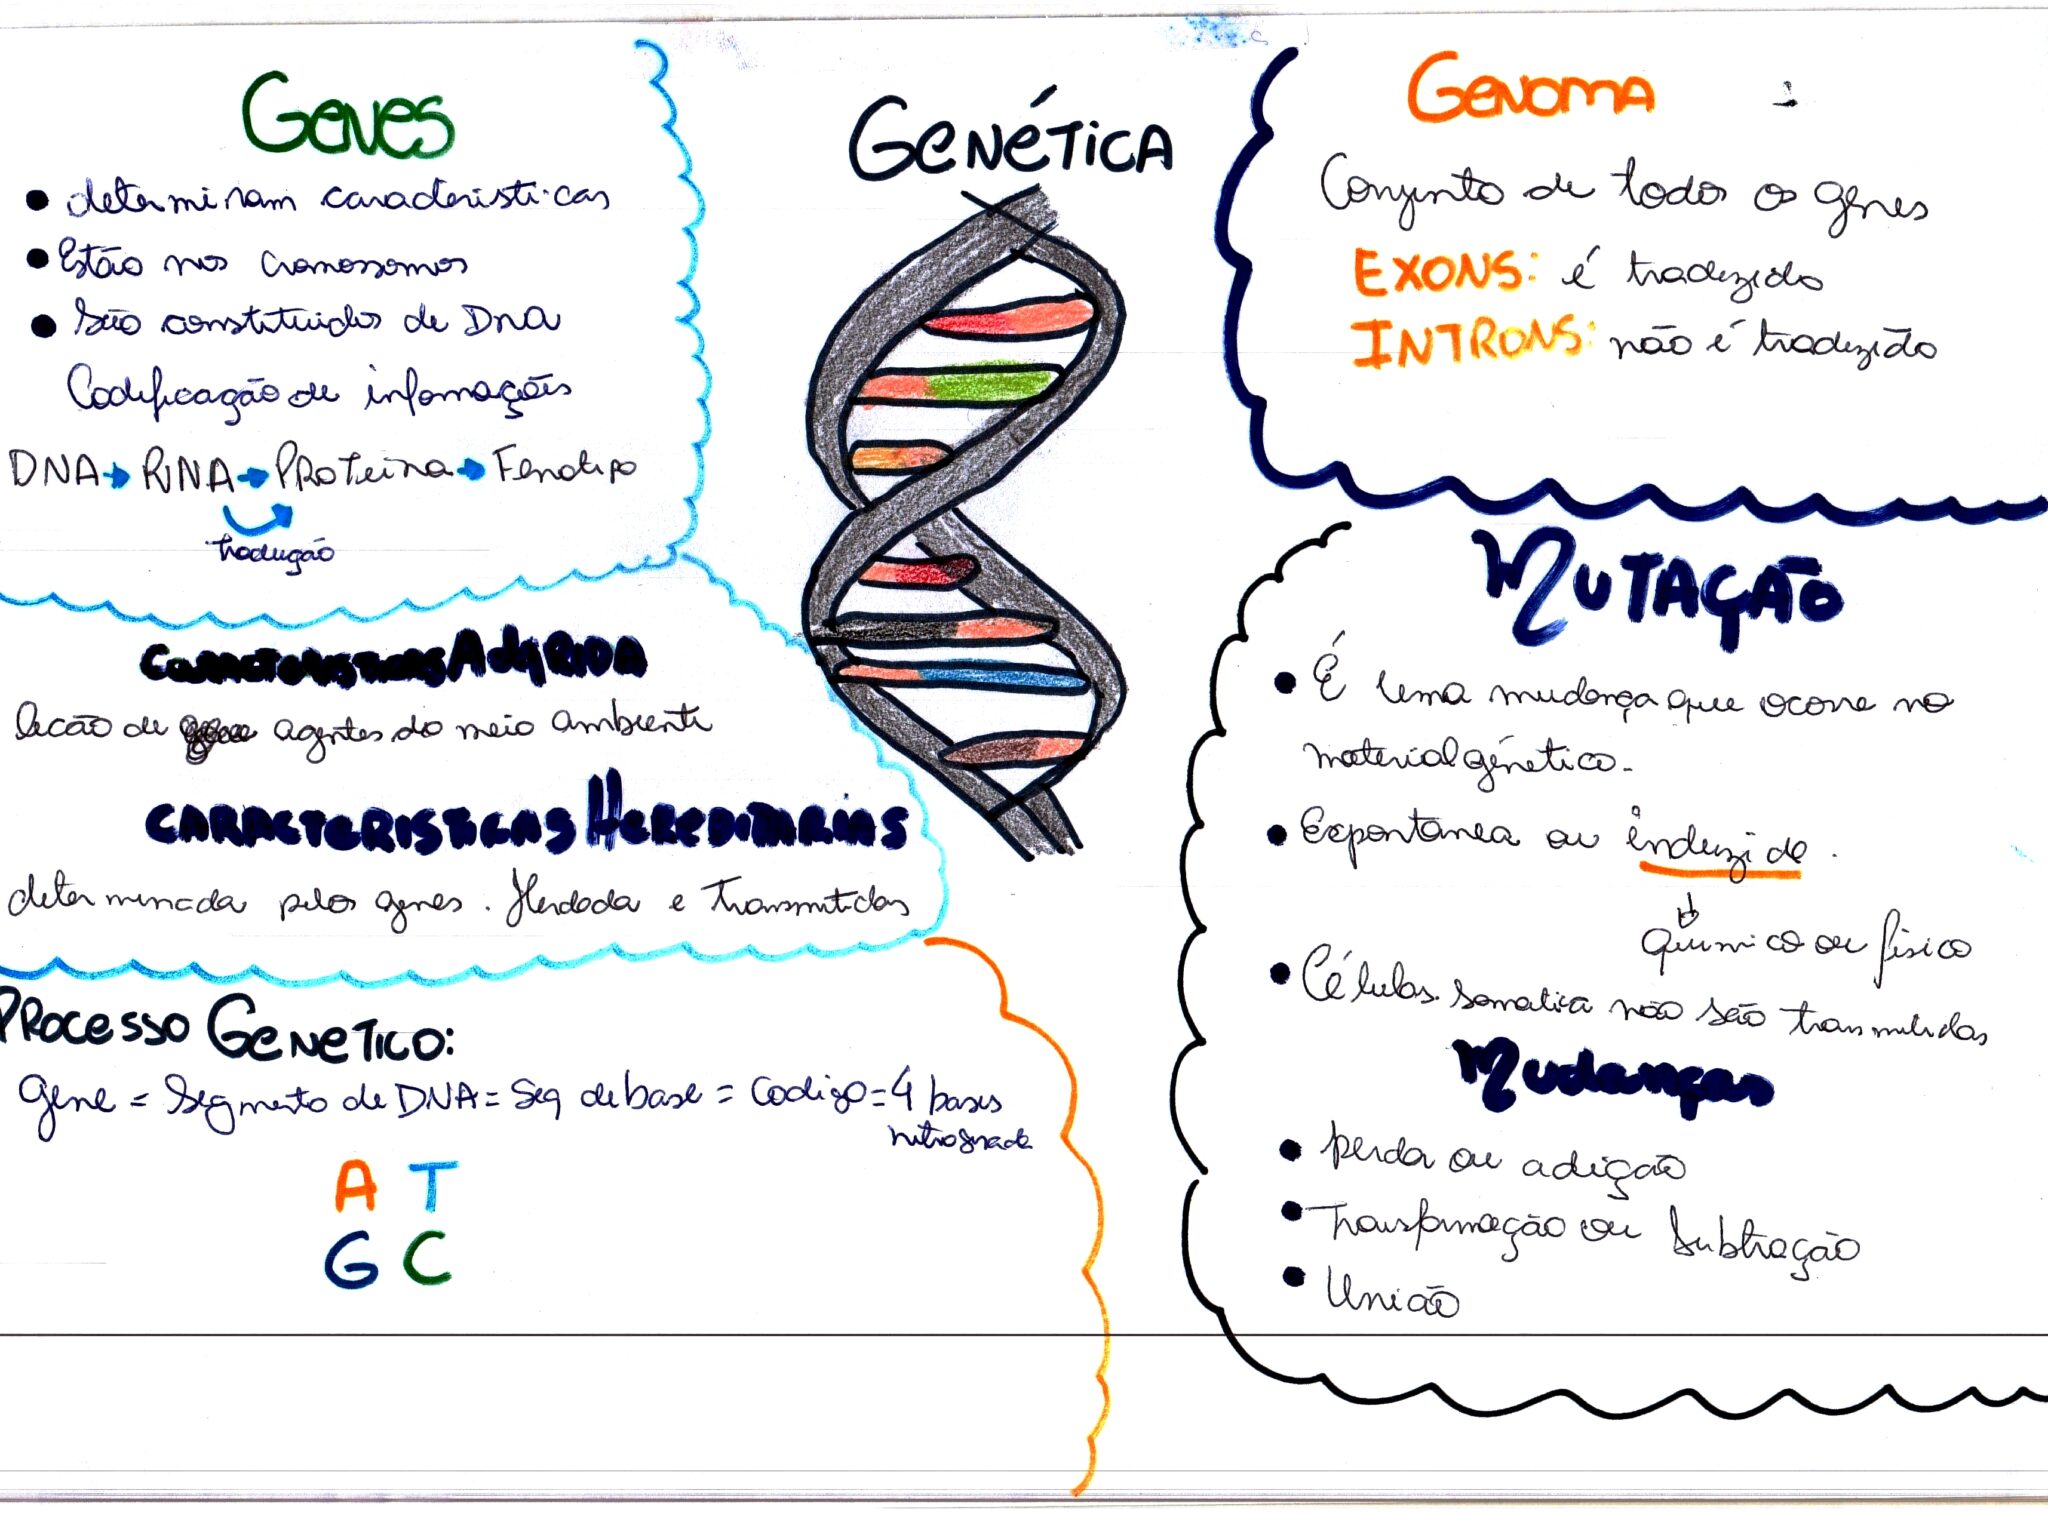 Genética
Genes
• determinam caracteristicas
• Estão nos cromossomos
• São constituidos de Dna
Codificação de informações
DNA → RNA → Proteina → Fenotipo
tradução
Caracteristicas Adqrida
de agentes do meio ambiente
Caracteristicas Hereditarias
determinada pelos genes. Herdada e Transmitidas
Processo Genetico:
gene = Segmento de DNA = Seq de base = Codigo = 4 bases
nitrogenada
A T
G C
Genoma
Conjunto de todos os genes
EXONS: é traduzido
INTRONS: não é traduzido
Mutação
• É uma mudança que ocorre no
material génetico.
• Expontanea ou induzida.
químico ou físico
• Células somatica não são transmitidas
Mudanças
• perda ou adição
• Transformação ou Subtração
• União